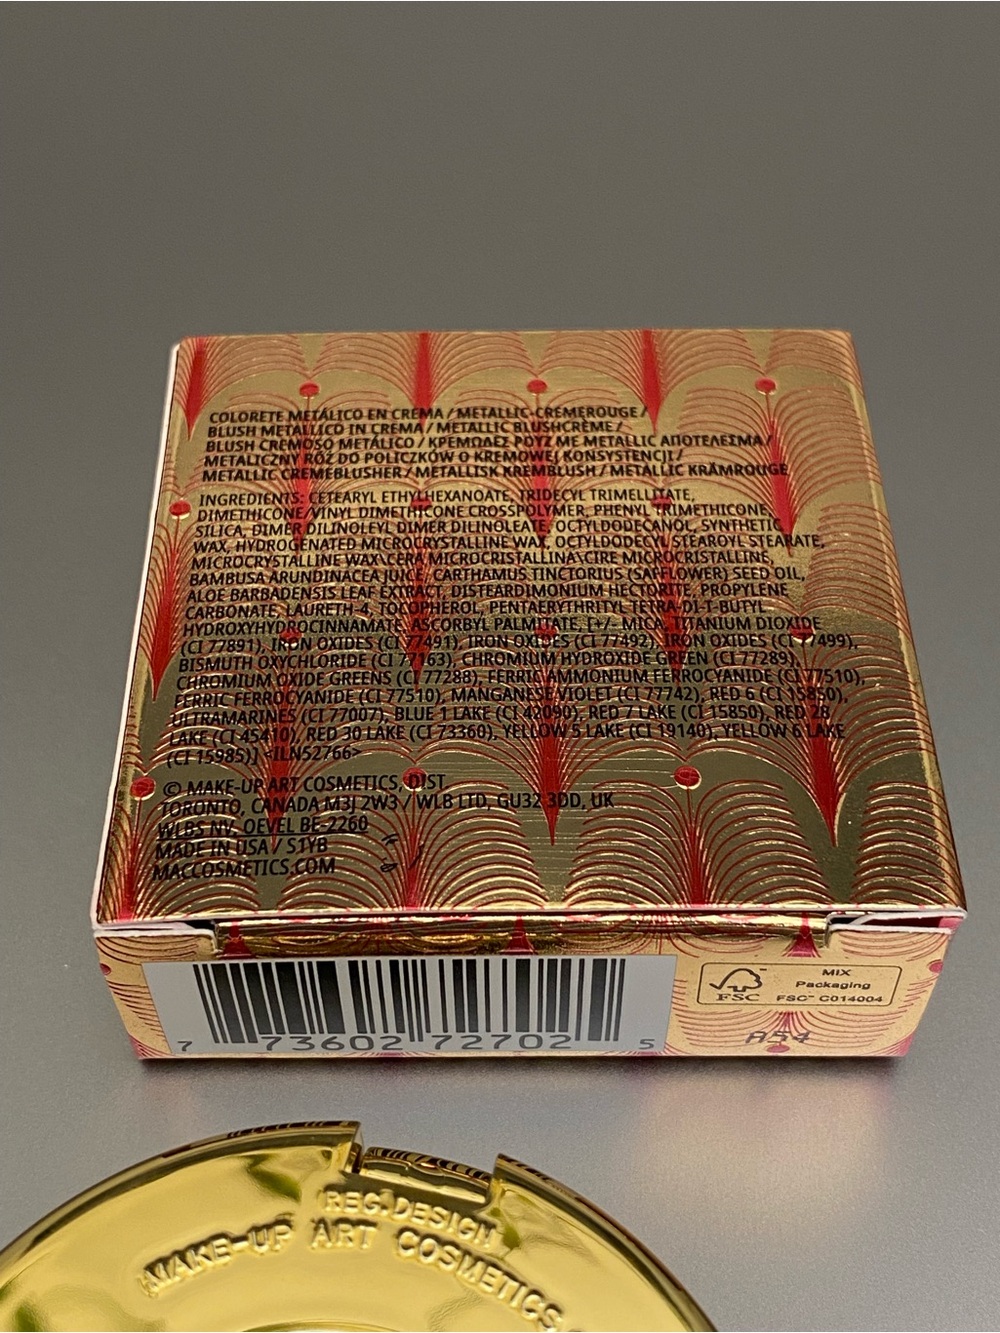 COLORETE METÁLICO EN CREMA / METALLIC-CREMEROUGE /
BLUSH METALLICO IN CREMA / METALLIC BLUSHCRÈME /
BLUSH CREMOSO METÁLICO / ΚΡΕΜΩΔΕΣ ΡΟΥΖ ΜΕ METALLIC ΑΠΟΤΕΛΕΣΜΑ /
METALICZNY RÓŻ DO POLICZKÓW O KREMOWEJ KONSYSTENCJI /
METALLIC CREMEBLUSHER / METALLISK KREMBLUSH / METALLIC KRÄMROUGE
INGREDIENTS: CETEARYL ETHYLHEXANOATE, TRIDECYL TRIMELLITATE,
DIMETHICONE/VINYL DIMETHICONE CROSSPOLYMER, PHENYL TRIMETHICONE,
SILICA, DIMER DILINOLEYL DIMER DILINOLEATE, OCTYLDODECANOL, SYNTHETIC
WAX, HYDROGENATED MICROCRYSTALLINE WAX, OCTYLDODECYL STEAROYL STEARATE,
MICROCRYSTALLINE WAX\CERA MICROCRISTALLINA\CIRE MICROCRISTALLINE,
BAMBUSA ARUNDINACEA JUICE, CARTHAMUS TINCTORIUS (SAFFLOWER) SEED OIL,
ALOE BARBADENSIS LEAF EXTRACT, DISTEARDIMONIUM HECTORITE, PROPYLENE
CARBONATE, LAURETH-4, TOCOPHEROL, PENTAERYTHRITYL TETRA-DI-T-BUTYL
HYDROXYHYDROCINNAMATE, ASCORBYL PALMITATE, [+/- MICA, TITANIUM DIOXIDE
(CI 77891), IRON OXIDES (CI 77491), IRON OXIDES (CI 77492), IRON OXIDES (CI 77499),
BISMUTH OXYCHLORIDE (CI 77163), CHROMIUM HYDROXIDE GREEN (CI 77289),
CHROMIUM OXIDE GREENS (CI 77288), FERRIC AMMONIUM FERROCYANIDE (CI 77510),
FERRIC FERROCYANIDE (CI 77510), MANGANESE VIOLET (CI 77742), RED 6 (CI 15850),
ULTRAMARINES (CI 77007), BLUE 1 LAKE (CI 42090), RED 7 LAKE (CI 15850), RED 28
LAKE (CI 45410), RED 30 LAKE (CI 73360), YELLOW 5 LAKE (CI 19140), YELLOW 6 LAKE
(CI 15985)] <ILN52766>
© MAKE-UP ART COSMETICS, DIST.
TORONTO, CANADA M3J 2W3 / WLB LTD, GU32 3DD, UK
WLBS NV, OEVEL BE-2260
MADE IN USA / S1YB
MACCOSMETICS.COM
7 73602 72702 5
FSC™
MIX
Packaging
FSC™ C014004
A54
REG. DESIGN
MAKE-UP ART COSMETICS